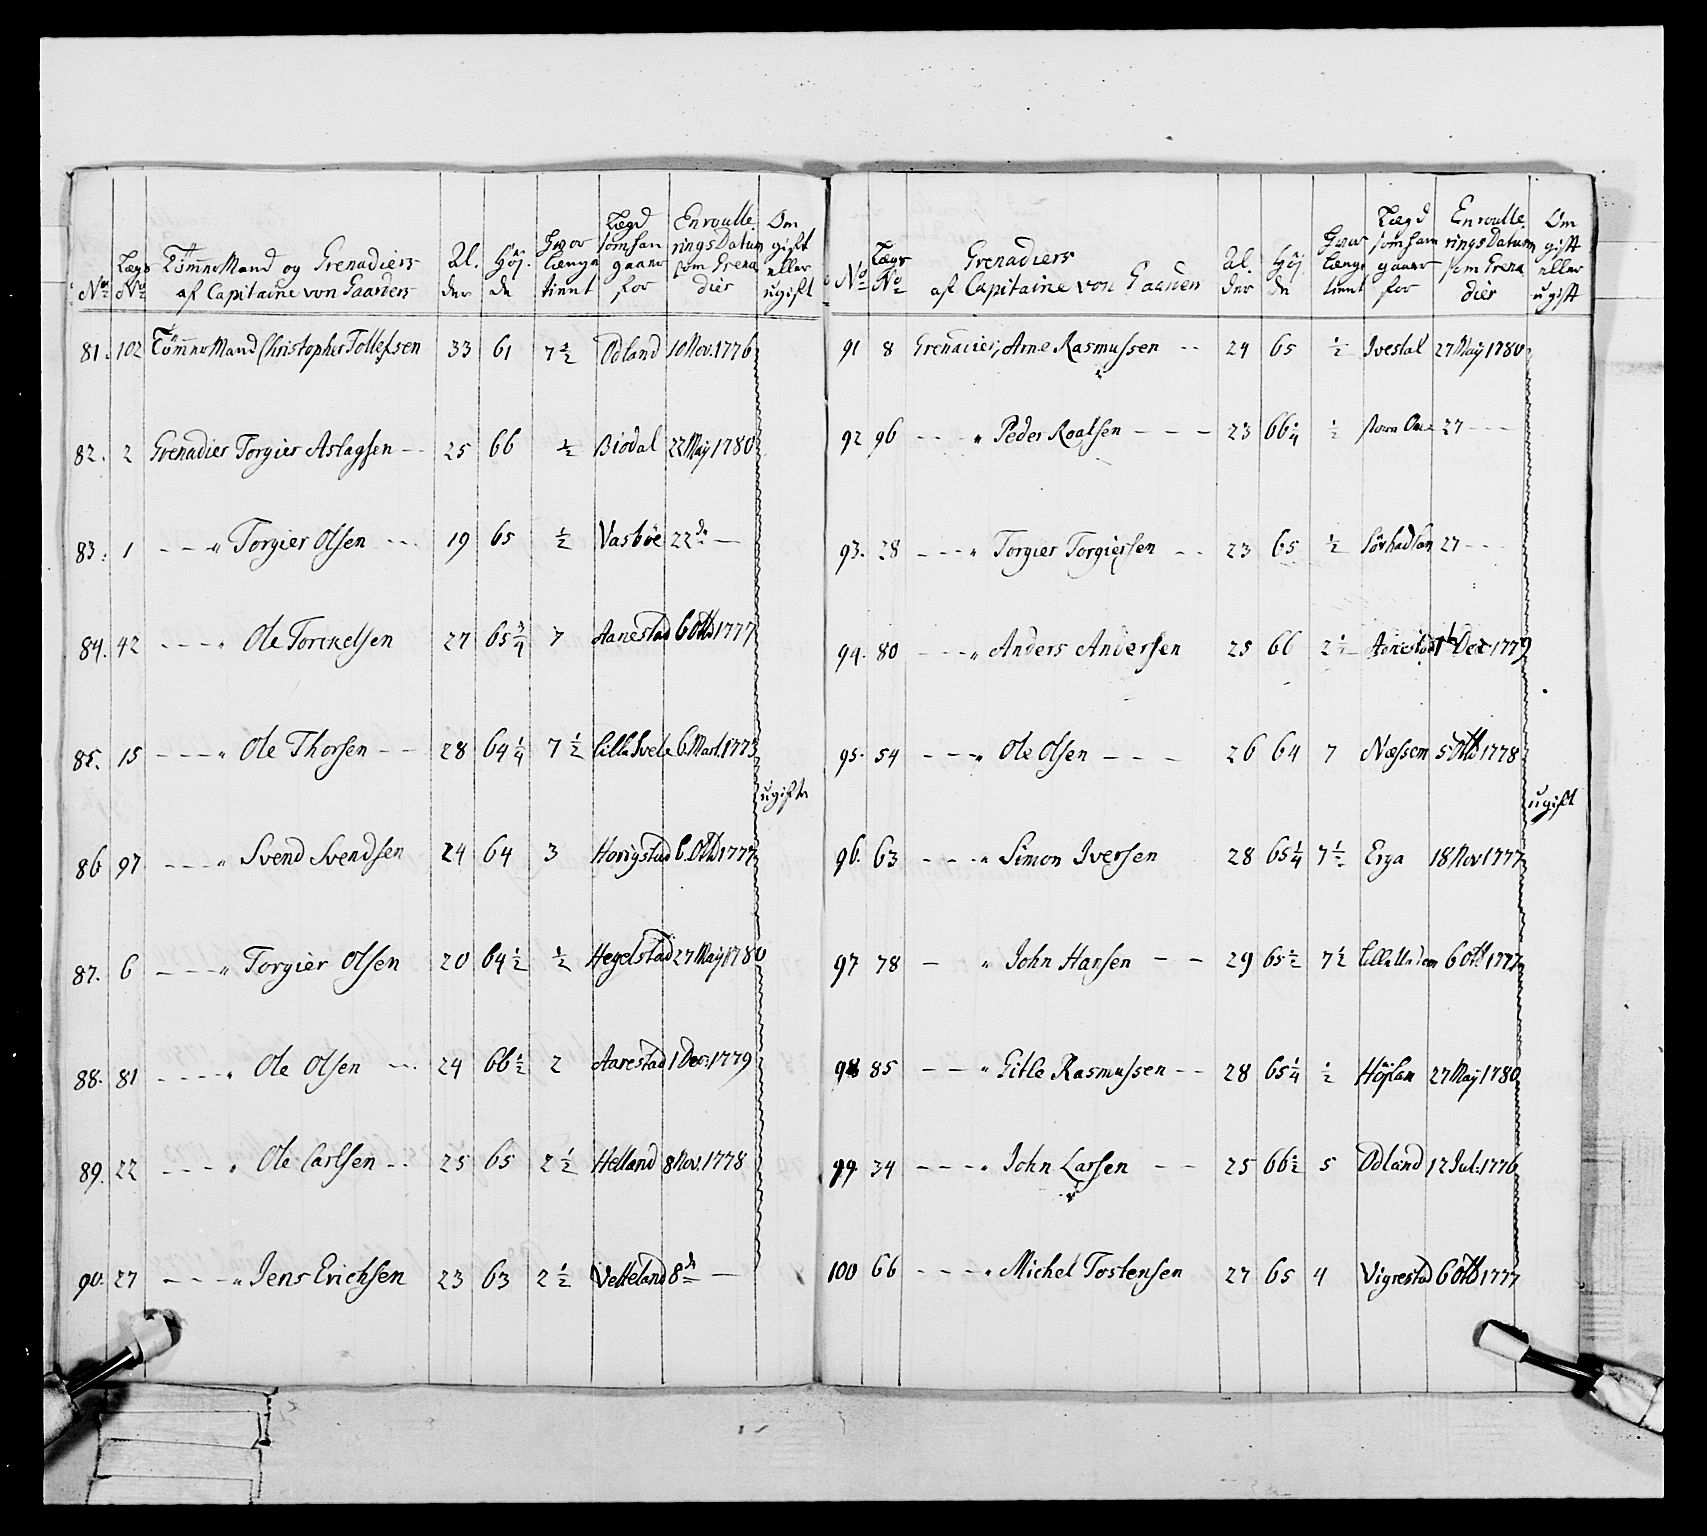 No Lægs No Tømmermand og Grenadiers af Capitaine von Gaarders Alder Høyde Hvor længe tient Lægd som han gaaer for Enroullerings Datum som Grenadier Om gift eller ugift
81. 102 Tømmermand Christopher Tollefsen 33 61 7½ Odland 10 Nov. 1776
82. 2 Grenadier Torgier Aslagsen -- 25 66 ½ Biødal 22 May 1780
83. 1 ---" Torgier Olsen --- 19 65 ½ Vasbøe 22de —
84. 42 ---" Ole Torkelsen 27 65¾ 7 Aanestad 6 Octb 1777
85. 15 ---" Ole Thorsen -- 28 64¼ 7½ Lille Svele 6 Mart. 1773
ugifte
86 97 ---" Svend Svendsen 24 64 3 Horigstad 6. Octb 1777
87. 6 ---" Torgier Olsen 20 64½ ½ Hegelstad 27 May 1780
88. 81 ----" Ole Olsen --- 24 66½ 2 Aarestad 1 Dec: 1779
89. 22 ---" Ole Carlsen -- 25 65 2½ Helland 8 Nov. 1778
90. 27 ---" Jens Erichsen 23 63 2½ Vetteland 8de —
No Lægs No Grenadiers af Capitaine von Gaarders Alder Høyde Hvor længe tient Lægd som han gaaer for Enroullerings Datum som Grenadier Om gift eller ugift
91 8 Grenadier, Arne Rasmussen -- 24 65 ½ Ivestal 27 May 1780
92 96 ---" Peder Roalsen --- 23 66¼ ½ 27 ---
93. 28 ---" Torgier Torgiersen -- 23 65 ½ 27 ---
94. 80 ---" Anders Andersen 25 66 2½ Aarestad 1 Dec 1779
95. 54 ---" Ole Olsen --- 26 64 7 Næssem 5 Octb 1778
ugift
96. 63 ---" Simon Iversen 28 65¼ 7½ Erga 18 Nov 1777
97 78 — " John Hansen -- 29 65½ 7½ 6 Octb 1777
98 85 --" Gitle Rasmussen -- 28 65¼ ½ Høylan 27 May 1780
99 34 ---" John Larsen -- 25 66½ 5 Odland 12 Jul. 1776
100 66 ---" Michel Tostensen 27 65 4 Vigrestad 6 Octb 1777